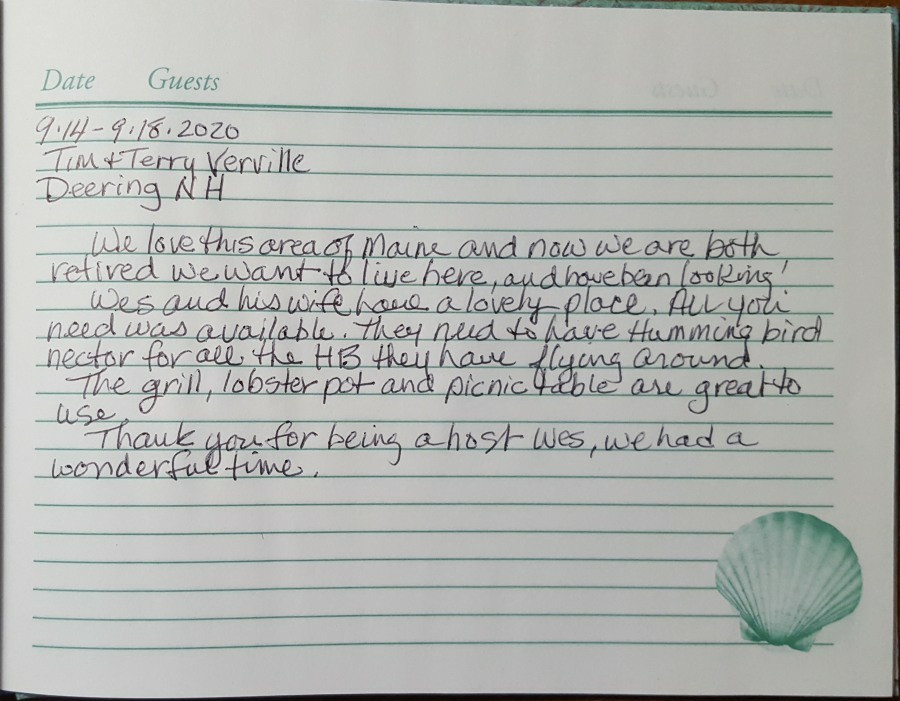 Date Guests
9.14-9.18.2020
Tim + Terry Verville
Deering NH
We love this area of Maine and now we are both
retired we want to live here, and have been looking!
Wes and his wife have a lovely place. All you
need was available. They need to have Humming bird
nector for all the HB they have flying around.
The grill, lobster pot and picnic table are great to
use.
Thank you for being a host Wes, we had a
wonderful time.